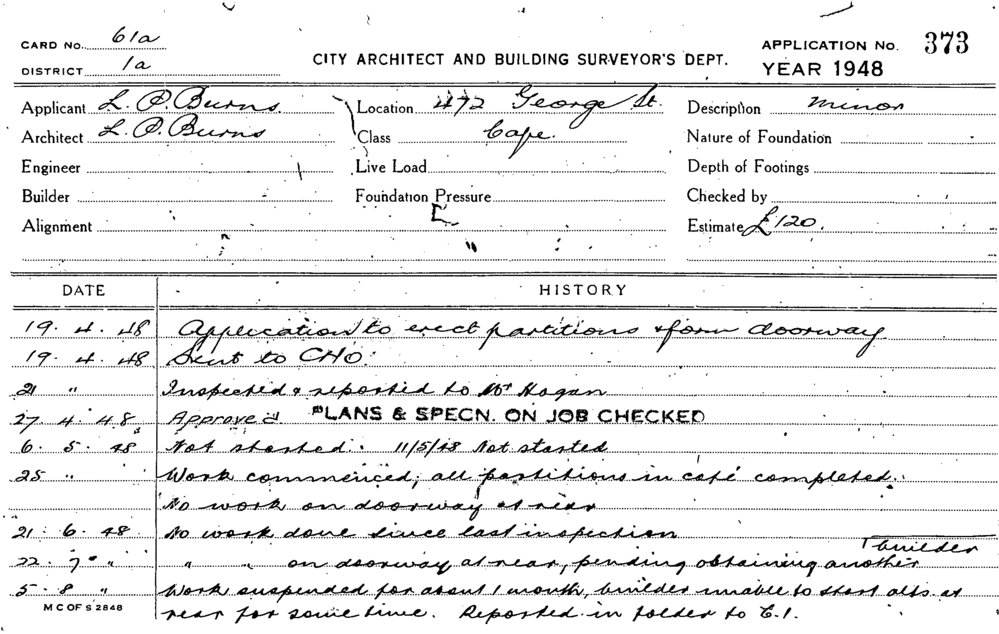 CARD No. 61a
DISTRICT 1a
CITY ARCHITECT AND BUILDING SURVEYOR'S DEPT.
APPLICATION No. 373
YEAR 1948
Applicant L. P. Burns.
Location 472 George St.
Description minor
Architect L. P. Burns
Class Cafe.
Nature of Foundation
Engineer
Live Load
Depth of Footings
Builder
Foundation Pressure
Checked by
Alignment
Estimate £120.
DATE HISTORY
19. 4. 48 Application to erect partitions & form doorway
19. 4. 48 Sent to CHO.
21 " Inspected & reported to Mr Hogan
27. 4. 48. Approved PLANS & SPECN. ON JOB CHECKED
6. 5. 48 Not started. 11/5/48 Not started
25 " Work commenced; all partitions in café completed.
No work on doorway at rear
21. 6. 48 No work done since last inspection
22. 7 " " " on doorway at rear, pending obtaining another builder
5. 8 " Work suspended for about 1 month, builder unable to start alts. at
M C OF S 2848
rear for some time. Reported in folder to E.1.